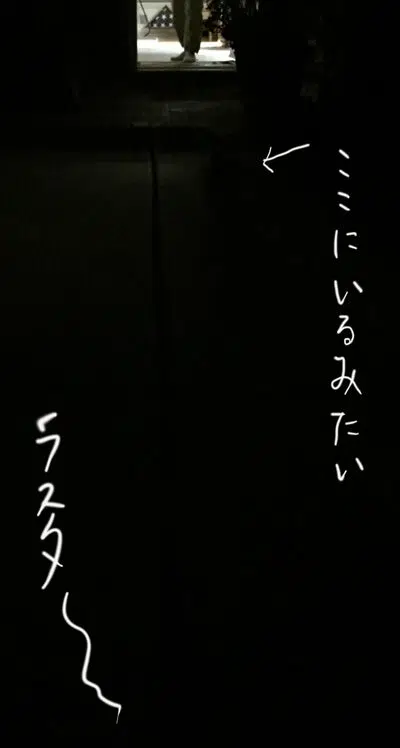 ここにいるみたい
ラスタ〜